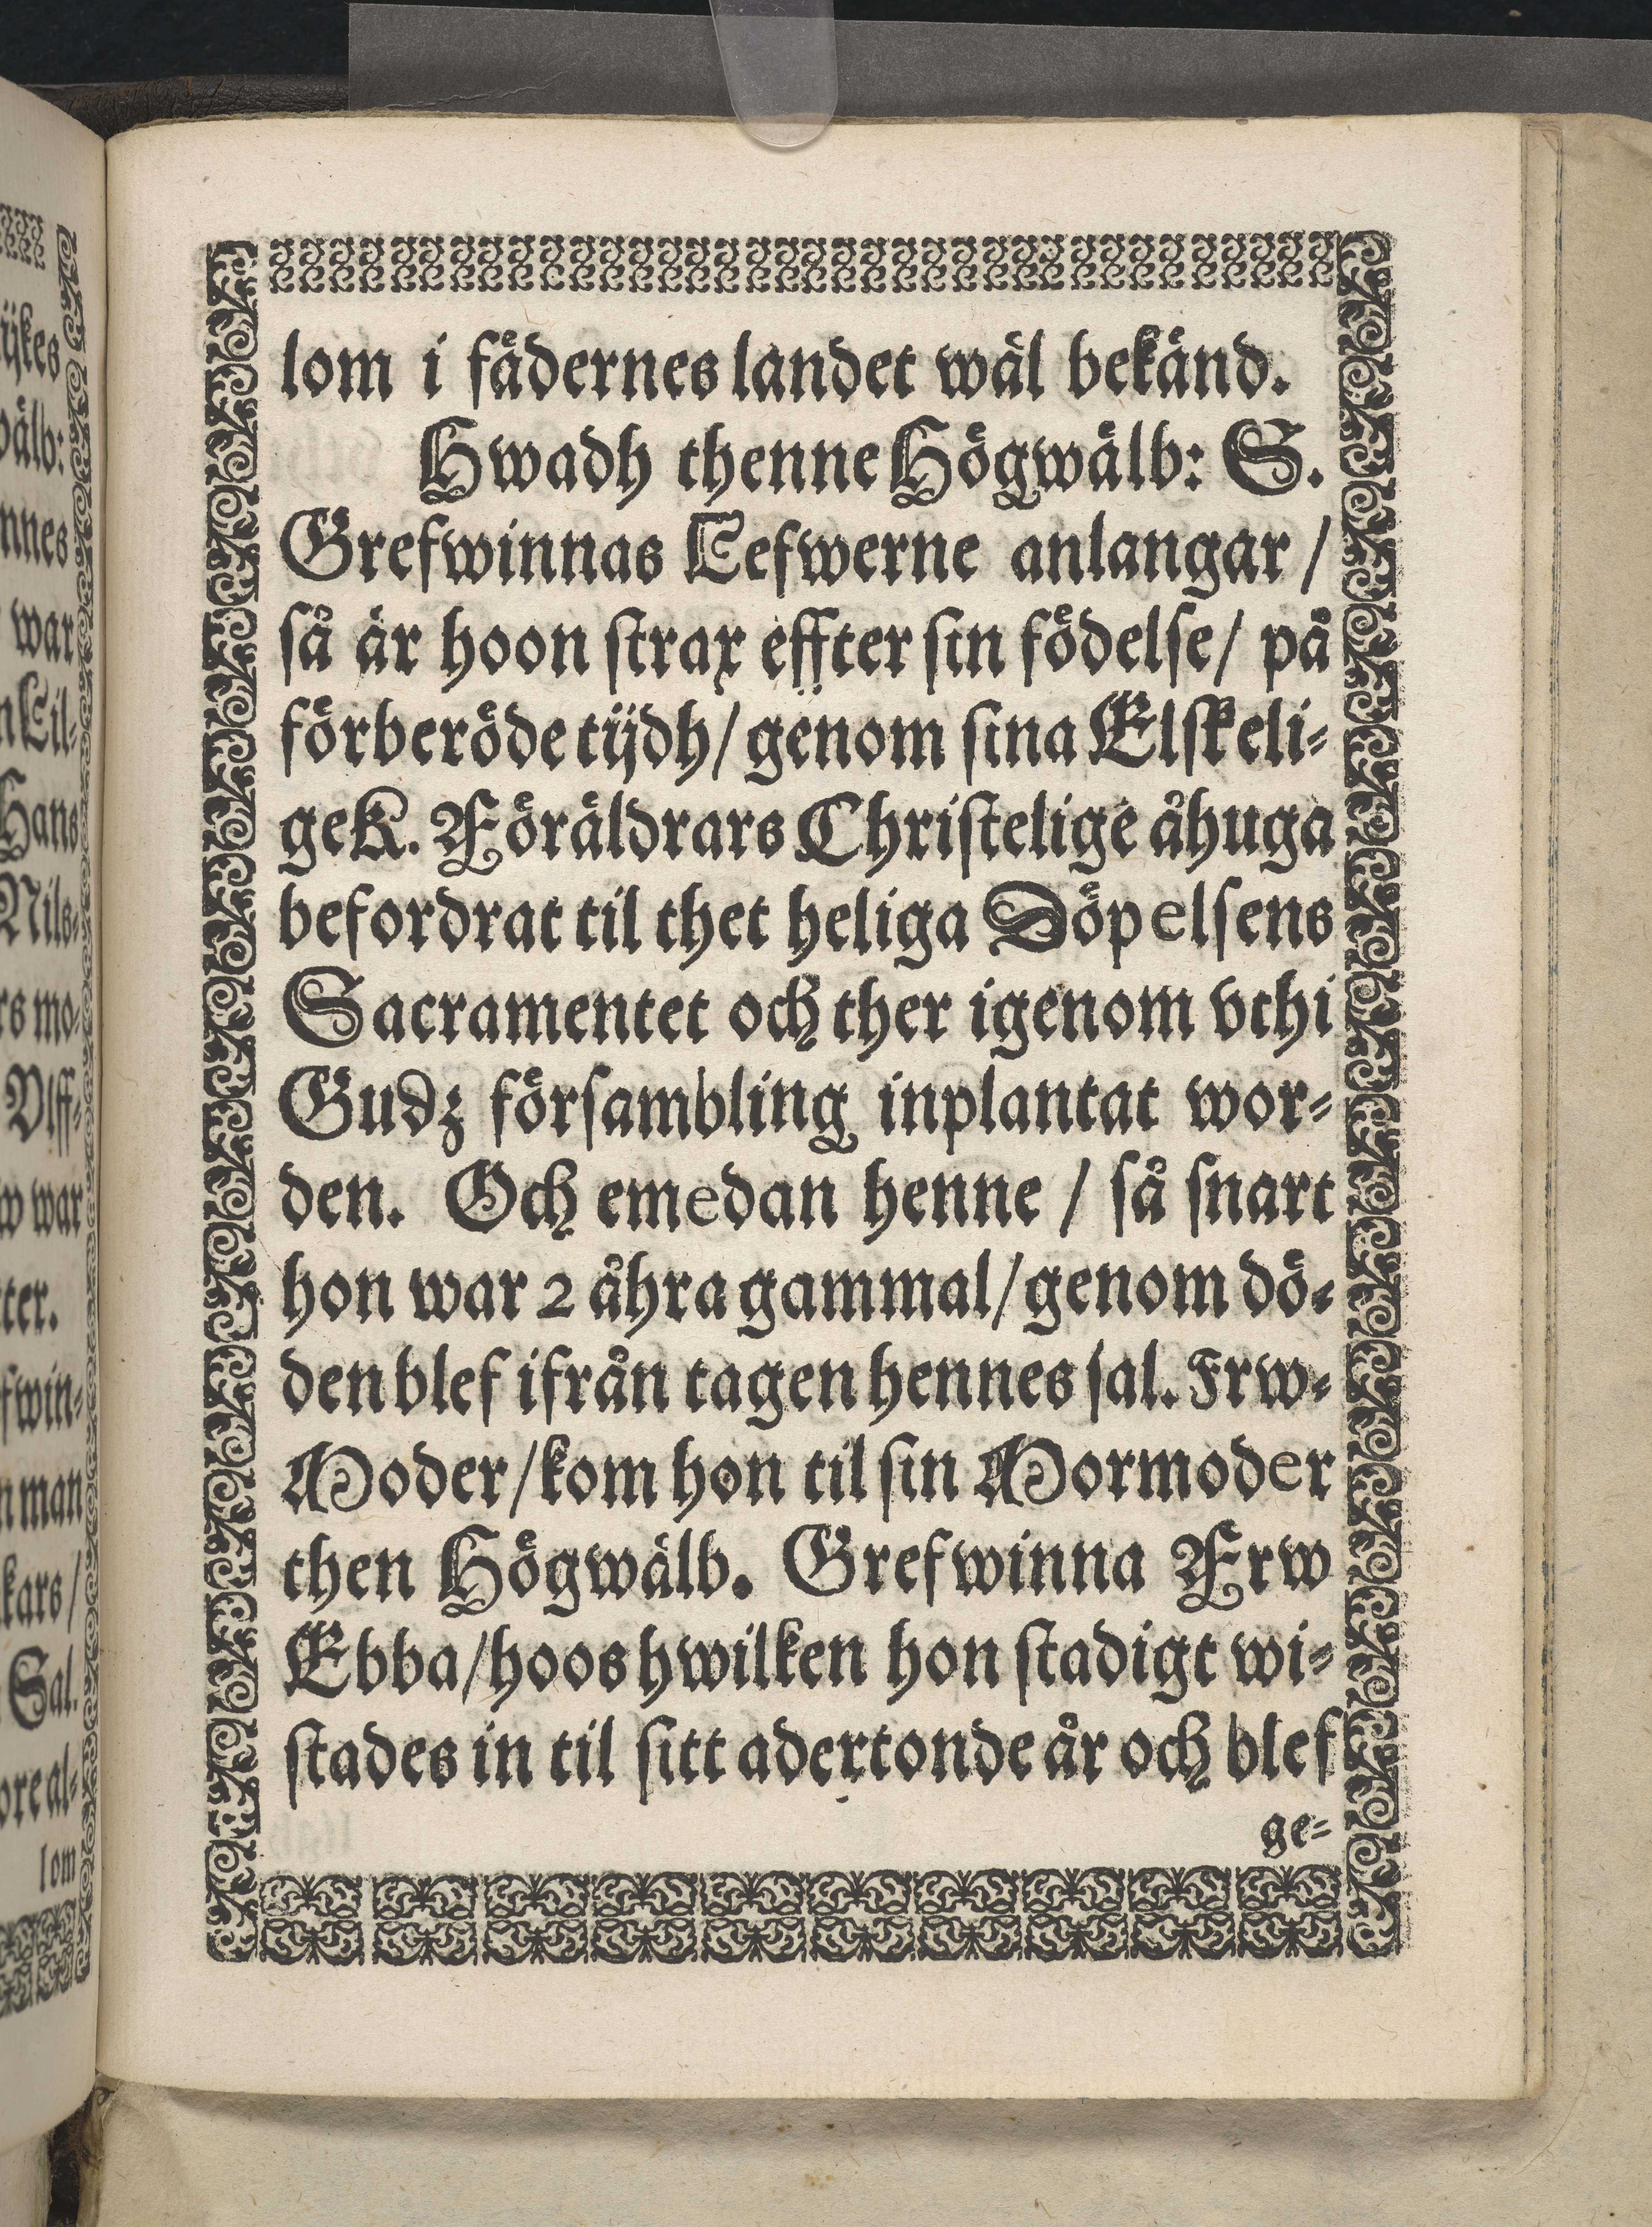 lom i fädernes landet wäl bekänd.
Hwadh thenne Högwälb: S.
Grefwinnas Lefwerne anlangar /
så är hoon strax effter sin födelse / på
förberöde tijdh / genom sina Elskeli-
ge K. Föräldrars Christelige åhuga
befordrat til thet heliga Döpelsens
Sacramentet och ther igenom vthi
Gudz försambling inplantat wor-
den. Och emedan henne / så snart
hon war 2 åhra gammal / genom dö-
den blef ifrån tagen hennes sal. Frw-
Moder / kom hon til sin Mormoder
then Högwälb. Grefwinna Frw
Ebba / hoos hwilken hon stadigt wi-
stades in til sitt adertonde år och blef
ge-